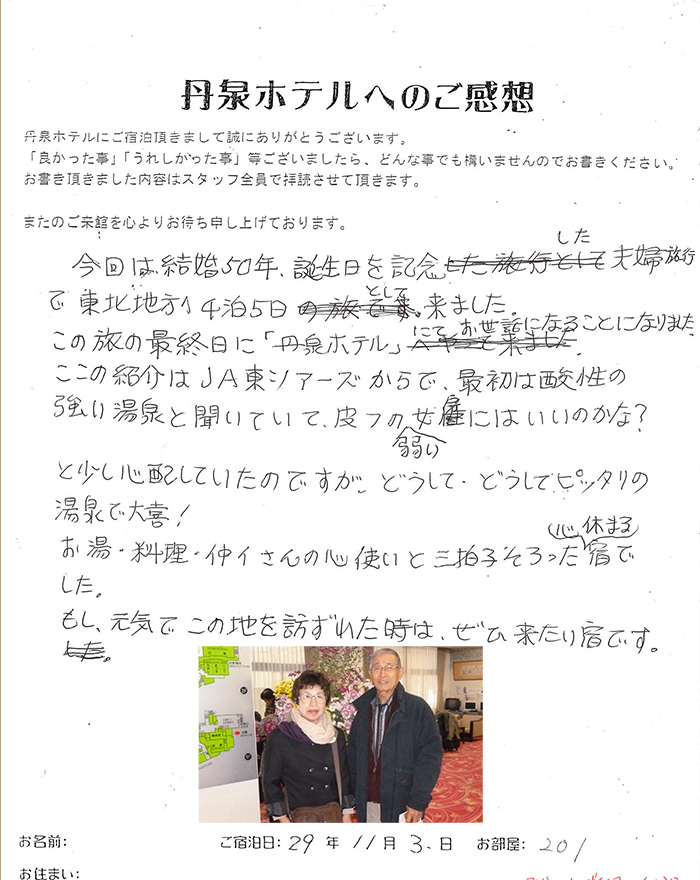 丹泉ホテルへのご感想
丹泉ホテルにご宿泊頂きまして誠にありがとうございます。
「良かった事」「うれしかった事」等ございましたら、どんな事でも構いませんのでお書きください。
お書き頂きました内容はスタッフ全員で拝読させて頂きます。
またのご来館を心よりお待ち申し上げております。
した
今回は結婚50年、誕生日を記念した旅行として夫婦旅行
として
で東北地方へ4泊5日の旅で来ました。
にてお世話になることになりました
この旅の最終日に「丹泉ホテル」へやって来ました.
ここの紹介はJA東ツアーズからで、最初は酸性の
強い温泉と聞いていて、皮フの女房にはいいのかな?
弱い
と少し心配していたのですが、どうして・どうしてピッタリの
温泉で大喜!
心休まる
お湯・料理・仲イさんの心使いと三拍子そろった宿で
した。
もし、元気でこの地を訪ずれた時は、ぜひ来たい宿です。
した。
お名前:
ご宿泊日: 29年 11月 3.日 お部屋: 201
お住まい: